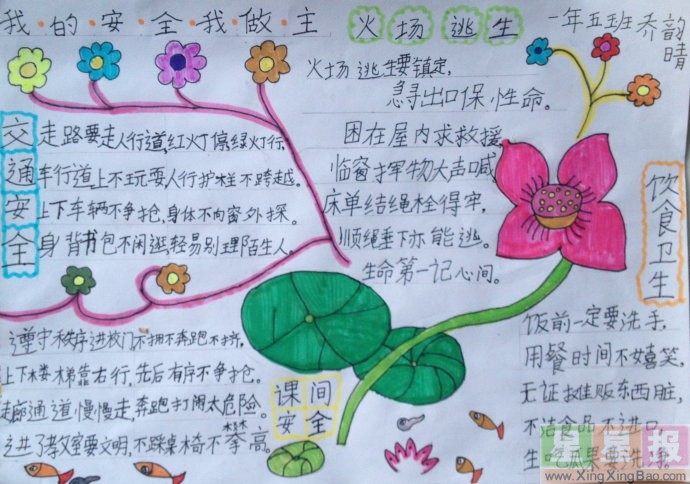 我的安全我做主
火场逃生
一年五班 乔韵晴
交通安全
走路要走人行道,红灯停绿灯行。
车行道上不玩耍,人行护栏不跨越。
上下车辆不争抢,身体不向窗外探。
身背书包不闲逛,轻易别理陌生人。
火场逃生要镇定,
急寻出口保性命。
困在屋内求救援,
临窗挥物大声喊。
床单结绳栓得牢,
顺绳垂下亦能逃。
生命第一记心间。
饮食卫生
饭前一定要洗手,
用餐时间不嬉笑,
无证摊贩东西脏,
不洁食品不进口,
生吃瓜果要洗净
课间安全
遵守秩序进校门不拥不奔跑不挤。
上下楼梯靠右行,先后有序不争抢。
走廊通道慢慢走,奔跑打闹太危险。
进了教室要文明,不踩桌椅不攀高。
星星报
www.XingXingBao.com